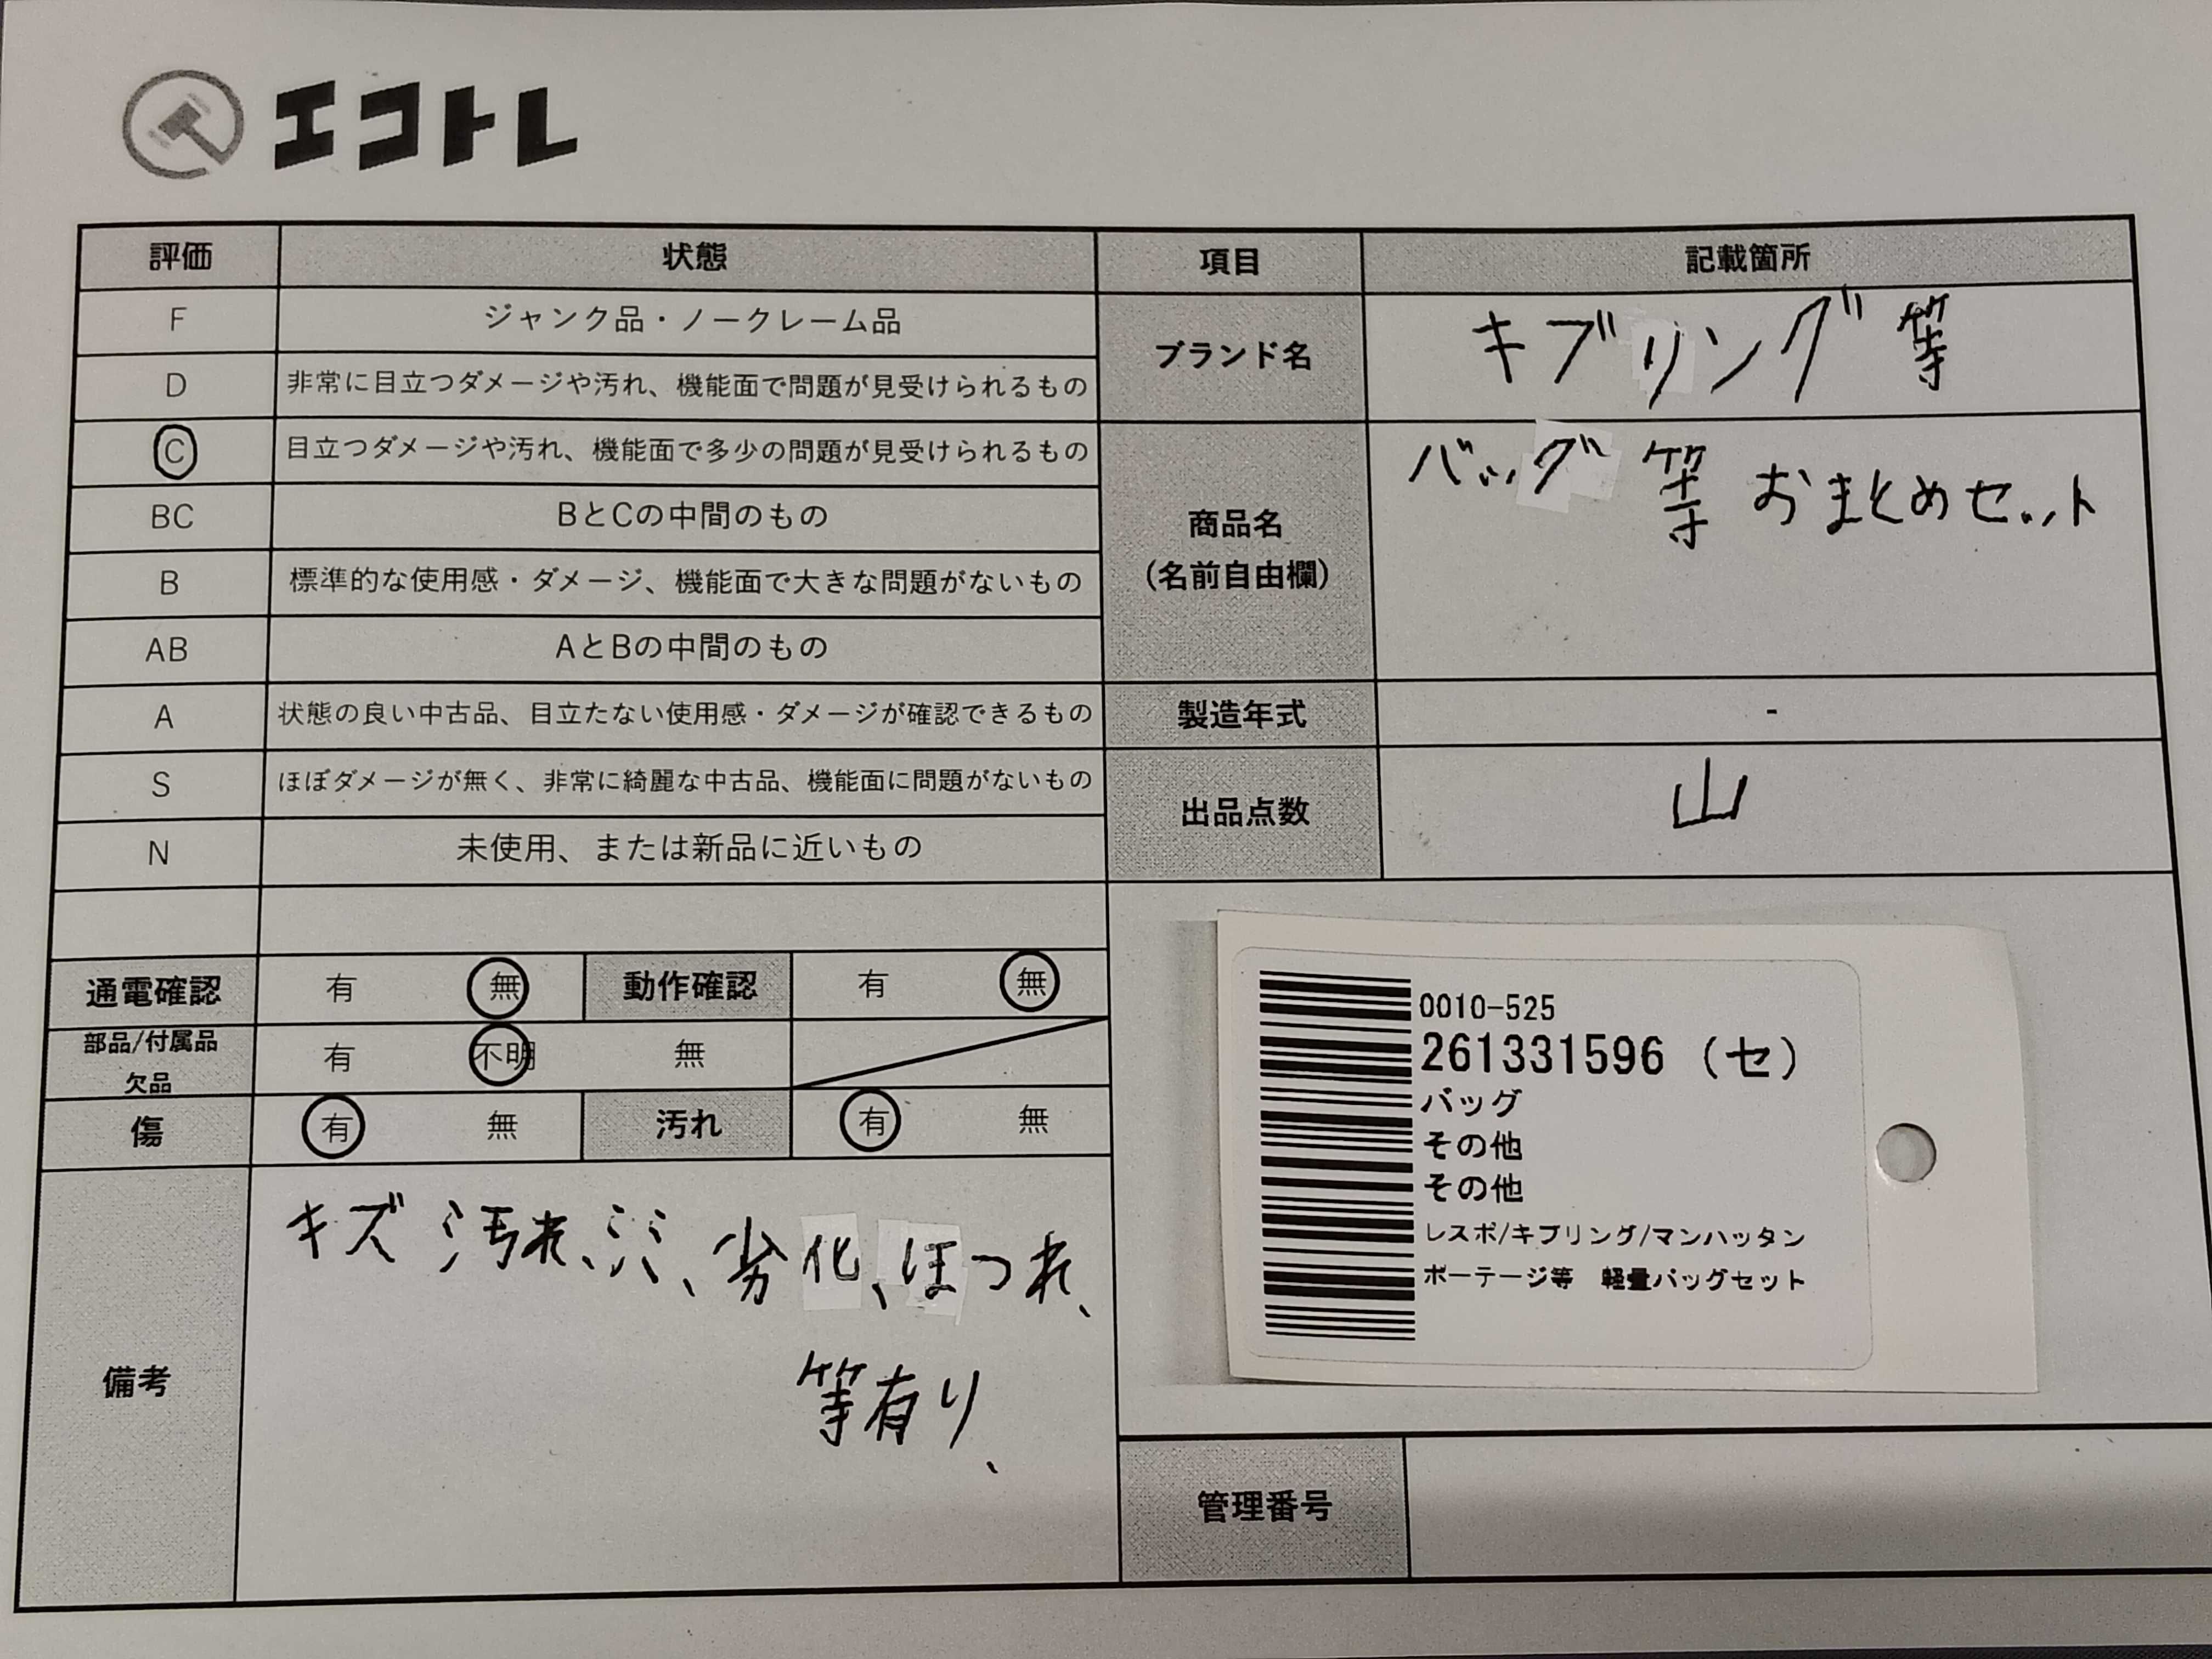 エコトレ
評価 状態 項目 記載箇所
F ジャンク品・ノークレーム品
D 非常に目立つダメージや汚れ、機能面で問題が見受けられるもの
C 目立つダメージや汚れ、機能面で多少の問題が見受けられるもの
BC BとCの中間のもの
B 標準的な使用感・ダメージ、機能面で大きな問題がないもの
AB AとBの中間のもの
A 状態の良い中古品、目立たない使用感・ダメージが確認できるもの
S ほぼダメージが無く、非常に綺麗な中古品、機能面に問題がないもの
N 未使用、または新品に近いもの
ブランド名 キブリング等
商品名
(名前自由欄)
バッグ等 おまとめセット
製造年式 -
出品点数 山
通電確認 有 無 動作確認 有 無
部品/付属品
欠品
有 不明 無
傷 有 無 汚れ 有 無
備考
キズ 汚れ、シミ、劣化、ほつれ、
等有り、
0010-525
261331596 (セ)
バッグ
その他
その他
レスポ/キプリング/マンハッタン
ポーテージ等 軽量バッグセット
管理番号